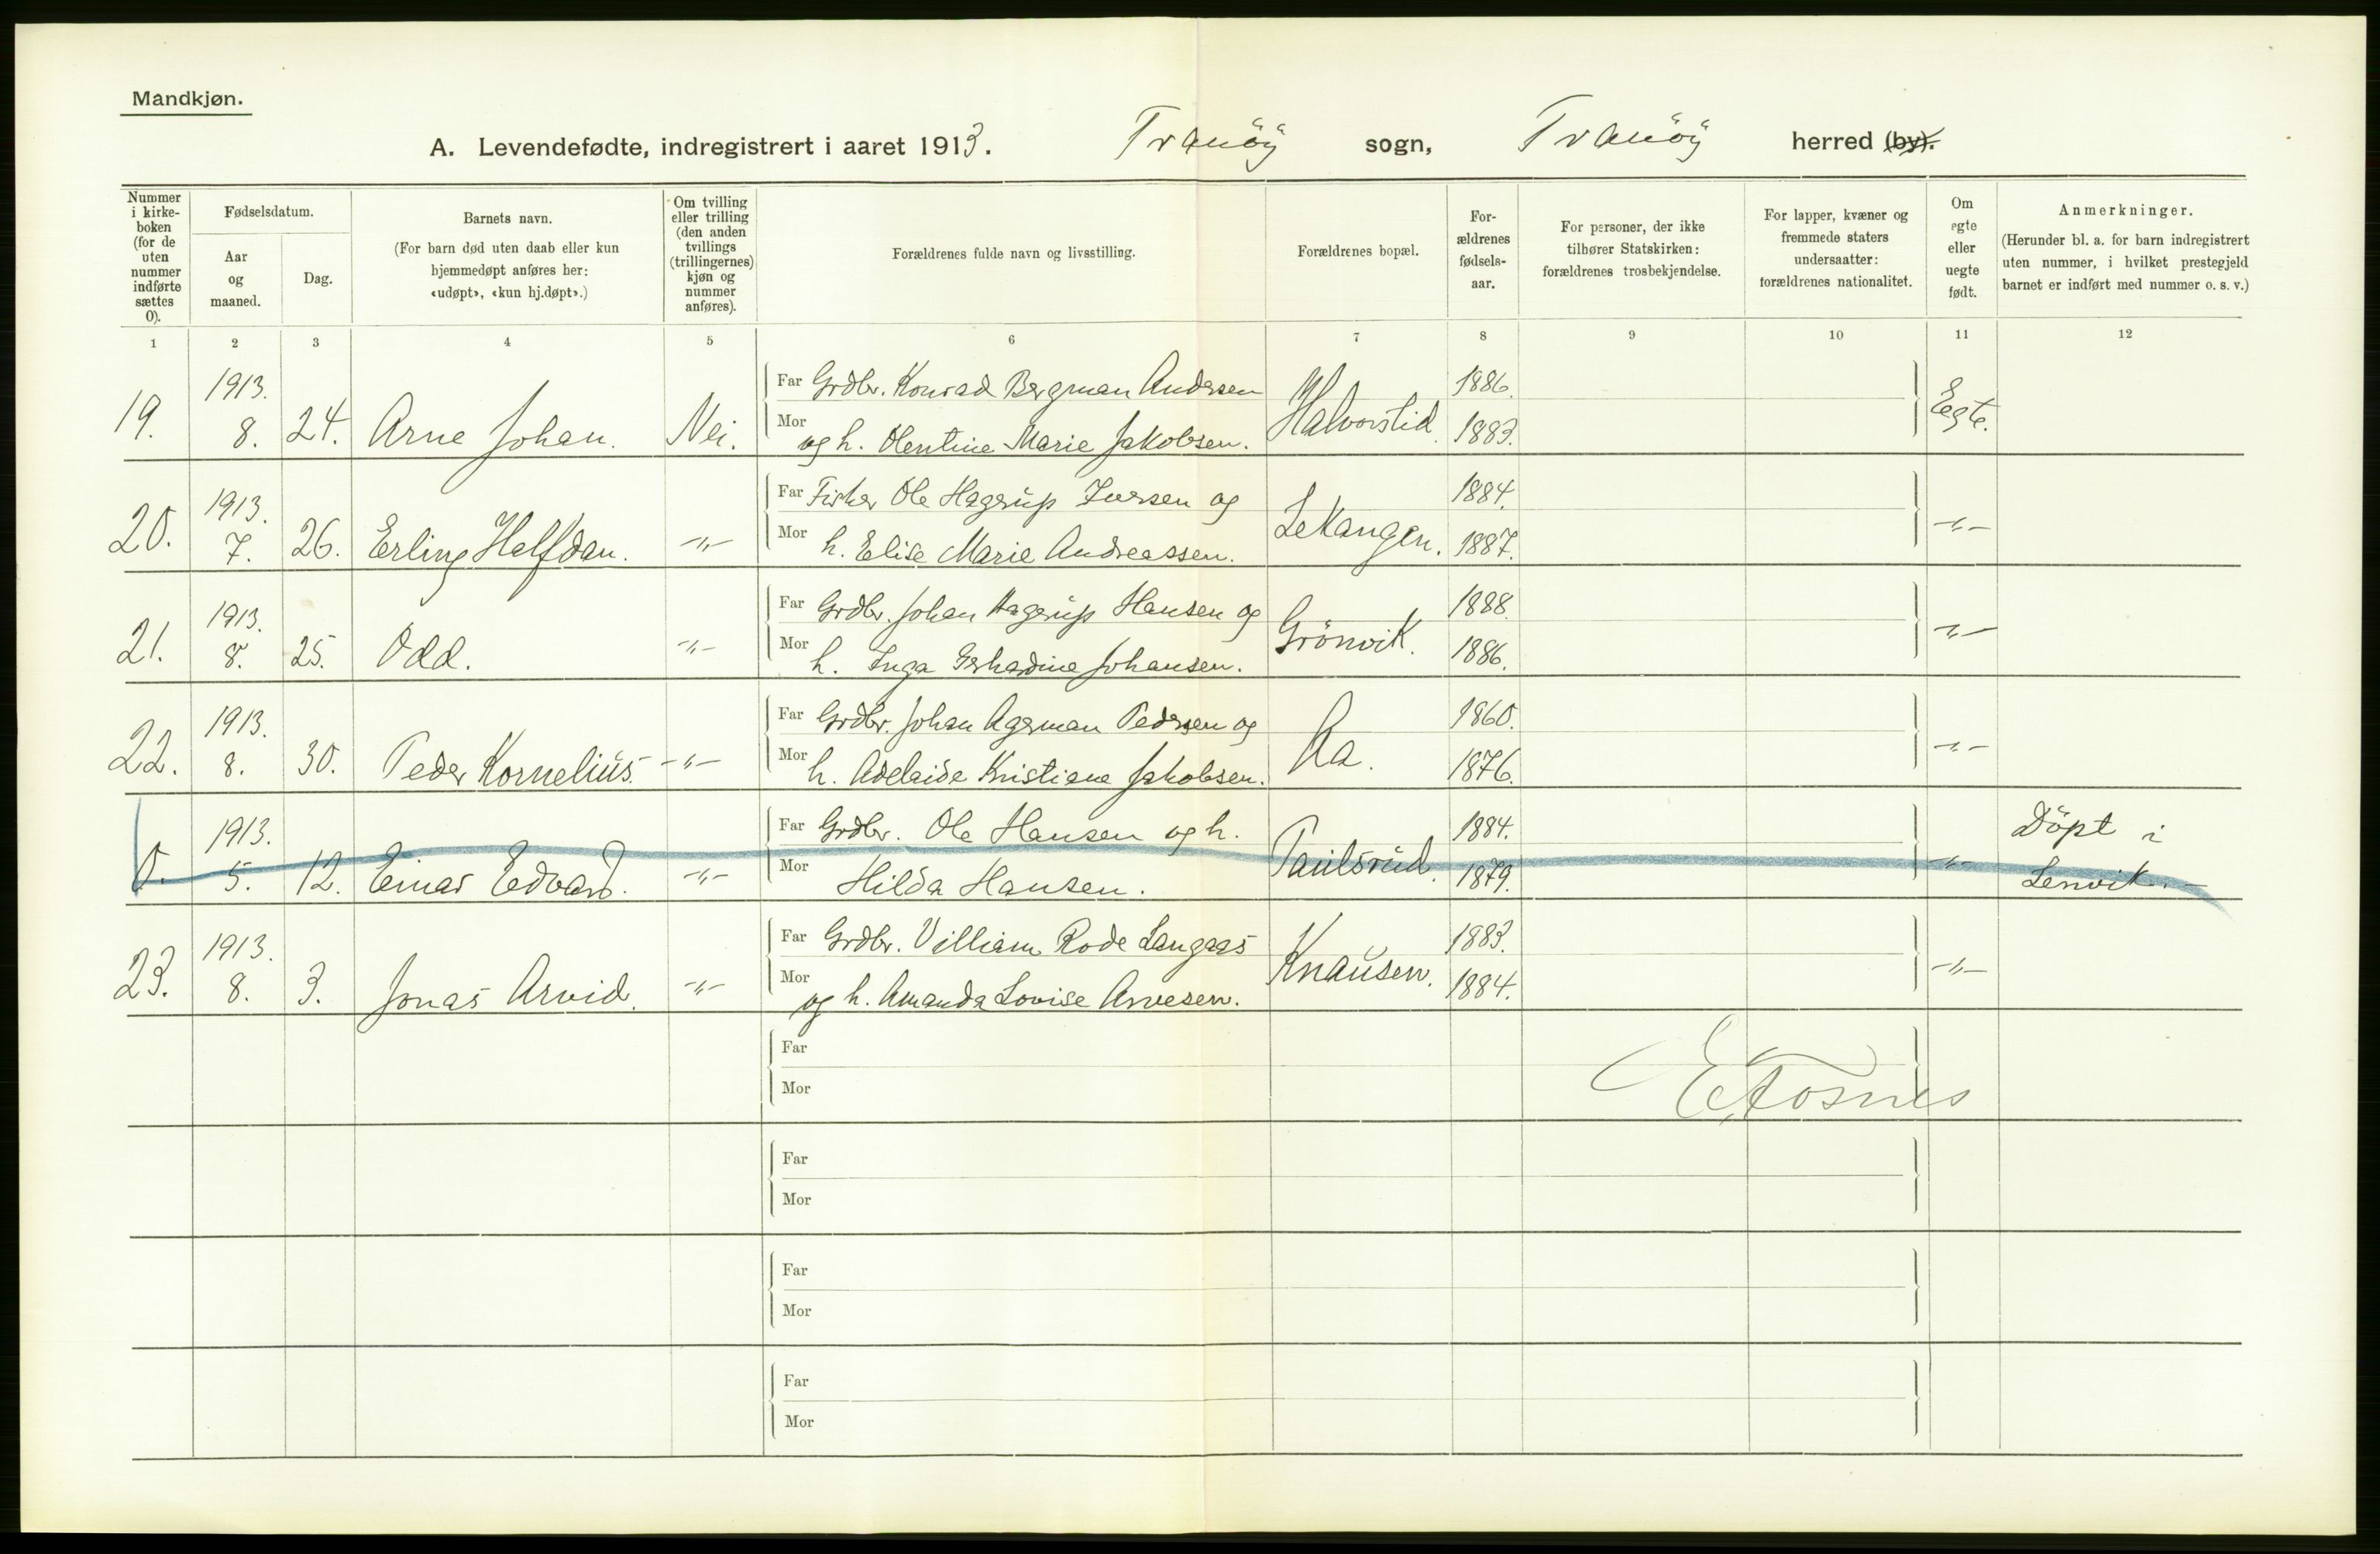 Mandkjøn.
A. Levendefødte, indregistrert i aaret 1913. Tranöÿ sogn, Tranöÿ herred (by).
Nummer i kirke- boken (for de uten nummer indførte sættes 0).
Fødselsdatum.
Aar og maaned.
Dag.
Barnets navn.
(For barn død uten daab eller kun hjemmedøpt anføres her: «udøpt», «kun hj.døpt».)
Om tvilling eller trilling (den anden tvillings (trillingernes) kjøn og nummer anføres).
Forældrenes fulde navn og livsstilling.
Forældrenes bopæl.
For- ældrenes fødsels- aar.
For personer, der ikke tilhører Statskirken: forældrenes trosbekjendelse.
For lapper, kvæner og fremmede staters undersaatter: forældrenes nationalitet.
Om egte eller uegte født.
Anmerkninger.
(Herunder bl. a. for barn indregistrert uten nummer, i hvilket prestegjeld barnet er indført med nummer o. s. v.)
1 2 3 4 5 6 7 8 9 10 11 12
19. 1913. 8. 24. Arne Johan. Nei. Far Grdbr. Konrad Bergman Andersen Halvorslid. 1886. Egte.
Mor og h. Olentine Marie Jakobsen. 1883.
20. 1913. 7. 26. Erling Halfdan. -"- Far Fisker Ole Hagerup Iversen og Lekangen. 1884. -"-
Mor h. Elise Marie Andreassen. 1887.
21. 1913. 8. 25. Odd. -"- Far Grdbr. Johan Hagerup Hansen og Grönvik. 1888. -"-
Mor h. Inga Gerhardine Johansen. 1886.
22. 1913. 8. 30. Peder Kornelius. -"- Far Grdbr. Johan Agerman Pedersen og Aa. 1860. -"-
Mor h. Adelaide Kristiane Jakobsen. 1876.
0. 1913. 5. 12. Einar Edvard. -"- Far Grdbr. Ole Hansen og h. Paulsrud. 1884. -"- Döpt i
Mor Hilda Hansen. 1879. Lenvik.
23. 1913. 8. 3. Jonas Arvid. -"- Far Grdbr. Villiam Rode Langaas Knausen. 1883. -"-
Mor og h. Amanda Lovise Arvesen. 1884.
Far
Mor
E Fosnes
Far
Mor
Far
Mor
Far
Mor